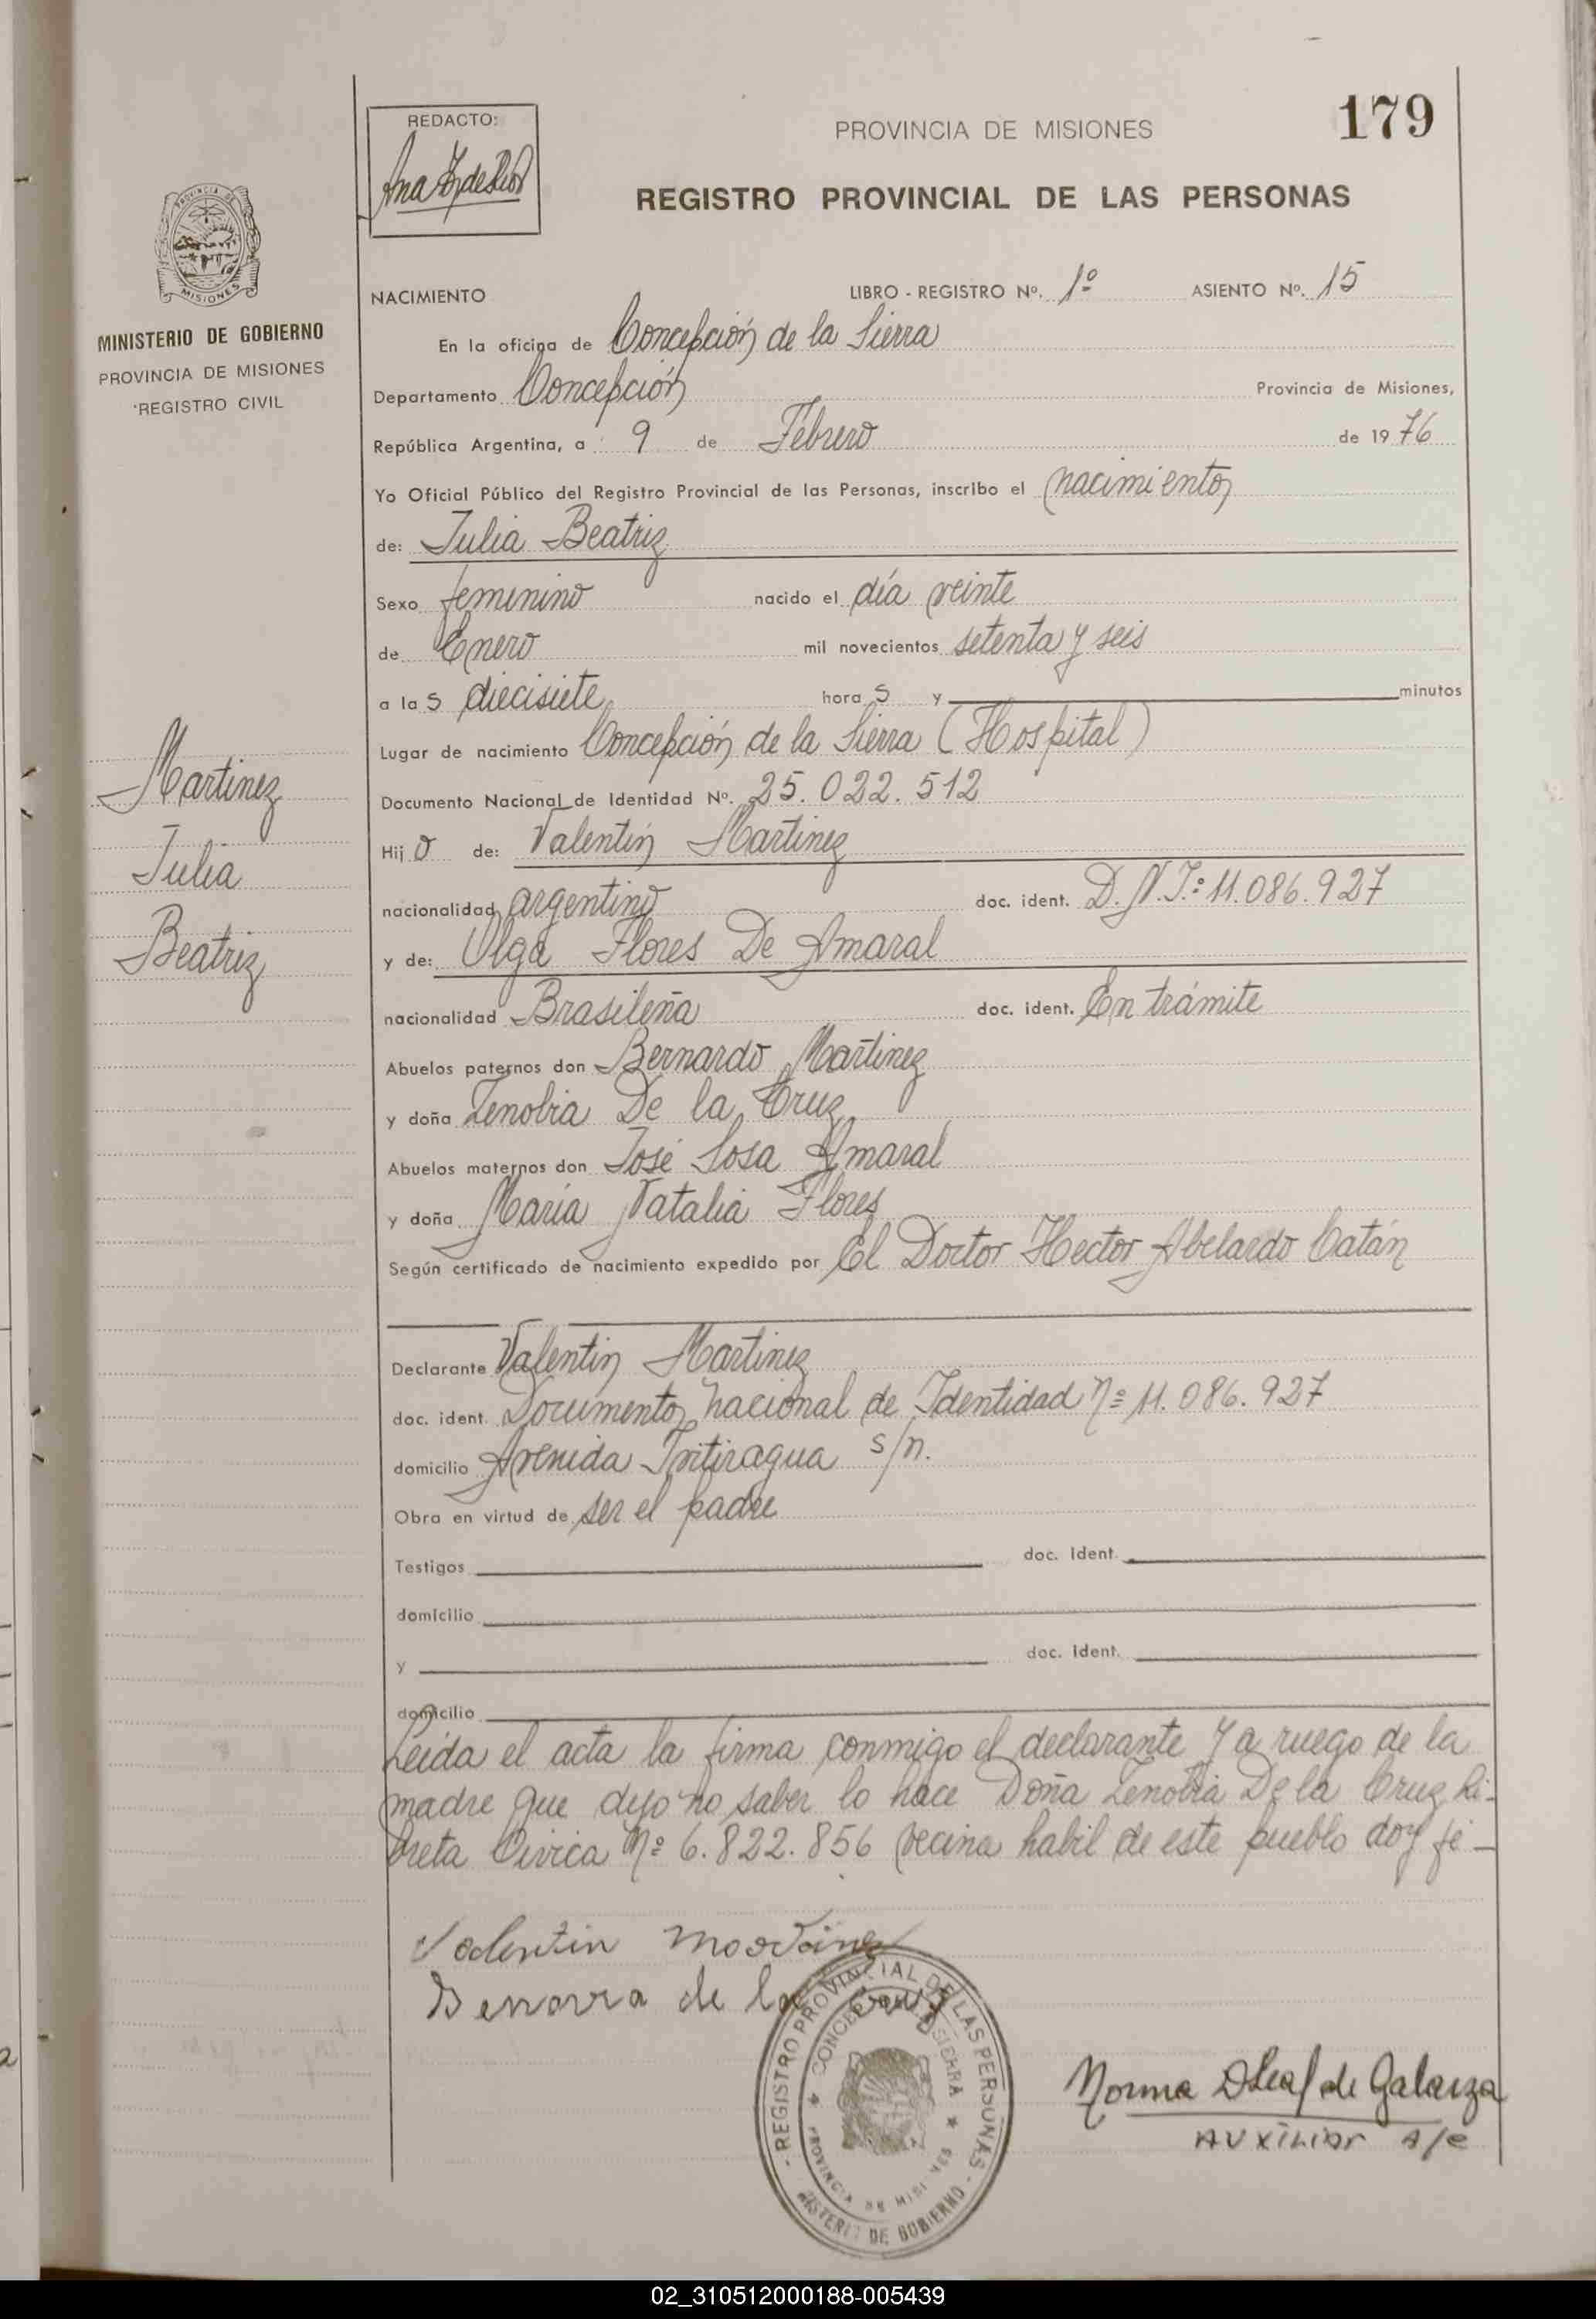 179
REDACTO:
PROVINCIA DE MISIONES
REGISTRO PROVINCIAL DE LAS PERSONAS
PROVINCIA DE
MISIONES
MINISTERIO DE GOBIERNO
PROVINCIA DE MISIONES
REGISTRO CIVIL
NACIMIENTO LIBRO - REGISTRO Nº. 1º ASIENTO Nº. 15
En la oficina de Concepción de la Sierra
Departamento Concepción Provincia de Misiones,
República Argentina, a 9 de Febrero de 1976
Yo Oficial Público del Registro Provincial de las Personas, inscribo el nacimiento
de: Julia Beatriz
Sexo femenino nacido el día veinte
de Enero mil novecientos setenta y seis
a las diecisiete horas y minutos
Lugar de nacimiento Concepción de la Sierra (Hospital)
Documento Nacional de Identidad Nº. 25.022.512
Hijo de: Valentín Martinez
nacionalidad argentino doc. ident. D.N.I.: 11.086.927
y de: Olga Flores De Amaral
nacionalidad Brasileña doc. ident. En trámite
Abuelos paternos don Bernardo Martinez
y doña Zenobia De la Cruz
Abuelos maternos don José Sosa Amaral
y doña María Natalia Flores
Según certificado de nacimiento expedido por El Doctor Hector Abelardo Catán
Declarante Valentín Martinez
doc. ident. Documento nacional de Identidad Nº 11.086.927
domicilio Avenida s/n.
Obra en virtud de ser el padre
Testigos doc. Ident.
domicilio
y doc. Ident.
domicilio
Leída el acta la firma conmigo el declarante y a ruego de la
madre que dijo no saber lo hace Doña Zenobia De la Cruz Li-
breta Cívica Nº 6.822.856 vecina habil de este pueblo doy fé-
Martinez
Julia
Beatriz
Valentin Martinez
de la Cruz
REGISTRO PROVINCIAL DE LAS PERSONAS
PROVINCIA DE MISIONES
DE GOBIERNO
Norma de Galarza
AUXILIAR A/C
02_310512000188-005439